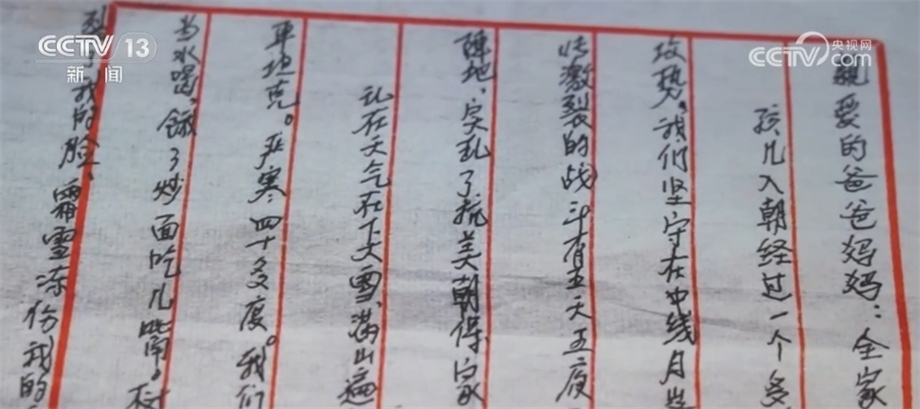 CCTV 13
新闻
央视网
CCTV.com
亲爱的爸爸妈妈：全家
孩儿入朝经过一个多
攻势。我们坚守在中线月
激裂的战斗有五天五夜
阵地，实现了抗美朝保家
现在天气在下大雪，满山遍
车坦克。严寒四十多度。我们
当水喝，饿了炒面吃几嘴。树
我的脸，霜雪冻伤我的